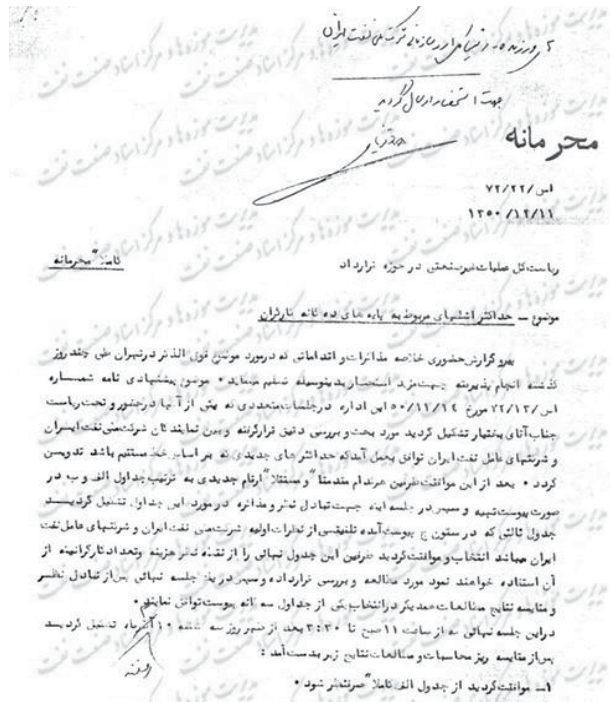 جهت استحضار ارسال گردید
محرمانه
اس/۷۲/۲۲
۱۳۵۰/۱۲/۱۱
ریاست کل عملیات غیرصنعتی در حوزه قرارداد
کاملا" محرمانه
موضوع – حداکثر اشلهای مربوط به پایه های ده گانه کارگران
پیرو گزارش حضوری خلاصه مذاکرات و اقداماتی که درمورد موضوع فوق الذکر درتهران طی چند روز
گذشته انجام پذیرفته جهت مزید استحضار بدینوسیله تسلیم مینماید • موضوع پیشنهادی نامه شمـــاره
اس/۷۲/۱۳ مورخ ۵۰/۱۱/۱۴ این اداره درجلسات متعددی که یکی از آنها درحضور و تحت ریاست
جناب آقای بختیار تشکیل گردید مورد بحث و بررسی دقیق قرارگرفته و بین نمایندگان شرکت ملی نفت ایـــران
و شرکتهای عامل نفت ایران توافق بعمل آمدکه حداکثر های جدیدی که بر اساس خط مستقیم باشد تدویـــن
گردد • بعد از این موافقت طرفین هرکدام مقدمتا" و مستقلا" ارقام جدیدی به ترتیب جداول الف و ب در
صورت پیوست تهیه و سپس در جلسه ایکه جهت تبادل نظر و مذاکره در مورد این جداول تشکیل گردیـــد
جدول ثالثی که در ستون ج پیوست آمده تلفیقی از نظرات اولیه شرکت ملی نفت ایران و شرکتهای عامل نفت
ایران میباشد انتخاب و موافقت گردید طرفین این جدول نهائی را از نقطه نظر هزینه وتعداد کارگرانیکه از
آن استفاده خواهند نمود مورد مطالعه و بررسی قرارداده و سپس در یک جلسه نهائی پس از تبادل نظـــر
و مقایسه نتایج مطالعات همدیگر درانتخاب یکی از جداول سه گانه پیوست توافق نمایند •
دراین جلسه نهائی که از ساعت ۱۱ صبح تا ۳:۳۰ بعد از ظهر روز سه شنبه ۱۰ ماه تشکیل گردیـــد
پس از مقایسه ریز محاسبات و مطالعات نتایج زیر بدست آمد :
۱– موافقت گردید از جدول الف کاملا" صرفنظر شود •